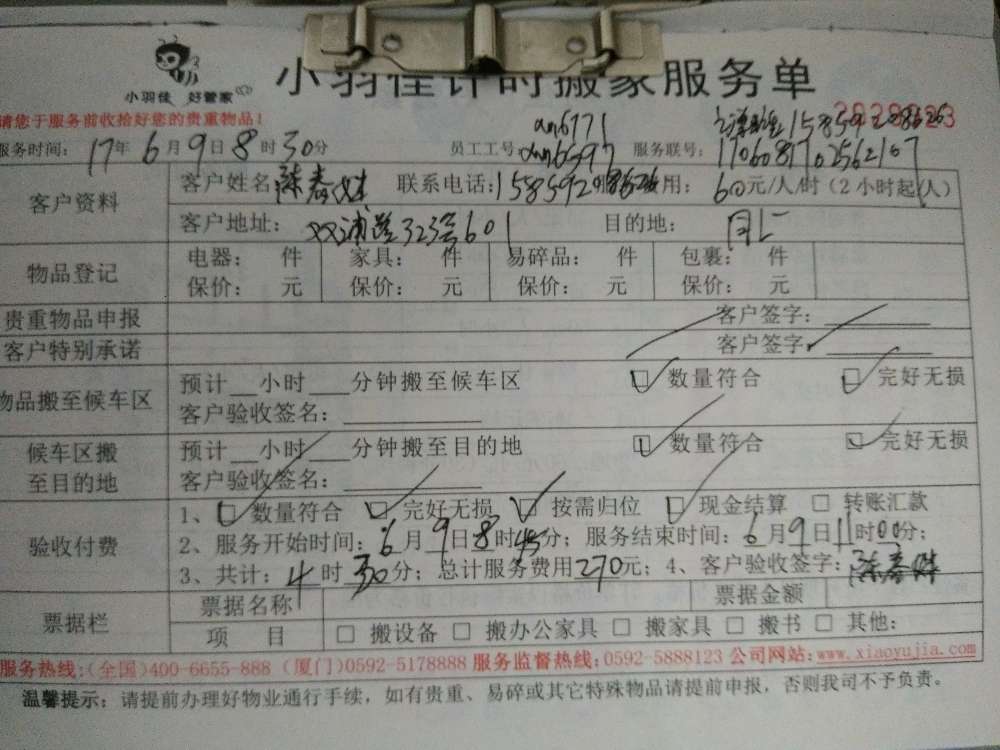 小羽佳 好管家
小羽佳计时搬家服务单
请您于服务前收拾好您的贵重物品!
服务时间: 17年 6月 9日 8时 30分 员工工号: 服务联号:
客户资料
客户姓名 联系电话: 用: 60元/人/时 (2小时起(人)
客户地址: 323号601 目的地: 同上
物品登记
电器: 件 家具: 件 易碎品: 件 包裹: 件
保价: 元 保价: 元 保价: 元 保价: 元
贵重物品申报 客户签字:
客户特别承诺 客户签字
物品搬至候车区
预计__小时___分钟搬至候车区 □ 数量符合 □ 完好无损
客户验收签名:
候车区搬至目的地
预计__小时___分钟搬至目的地 □ 数量符合 □ 完好无损
客户验收签名:
验收付费
1、□ 数量符合 □ 完好无损 □ 按需归位 □ 现金结算 □ 转账汇款
2、服务开始时间: 6月 9日 8时45分; 服务结束时间: 6月 9日 11时00分;
3、共计: 4时 30分; 总计服务费用270元; 4、客户验收签字:
票据栏
票据名称 票据金额
项 目 □ 搬设备 □ 搬办公家具 □ 搬家具 □ 搬书 □ 其他:
服务热线:(全国)400-6655-888 (厦门)0592-5178888 服务监督热线:0592-5888123 公司网站:www.xiaoyujia.com
温馨提示: 请提前办理好物业通行手续,如有贵重、易碎或其它特殊物品请提前申报,否则我司不予负责。